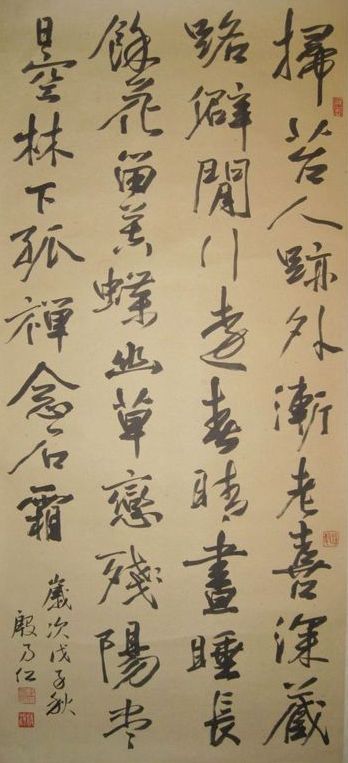 掃苔人跡外漸老喜深藏
路僻閒行遠春晴晝睡長
餘花留暮蝶幽草戀殘陽盡
日空林下孤禪念石霜
歲次戊子秋
殷乃仁